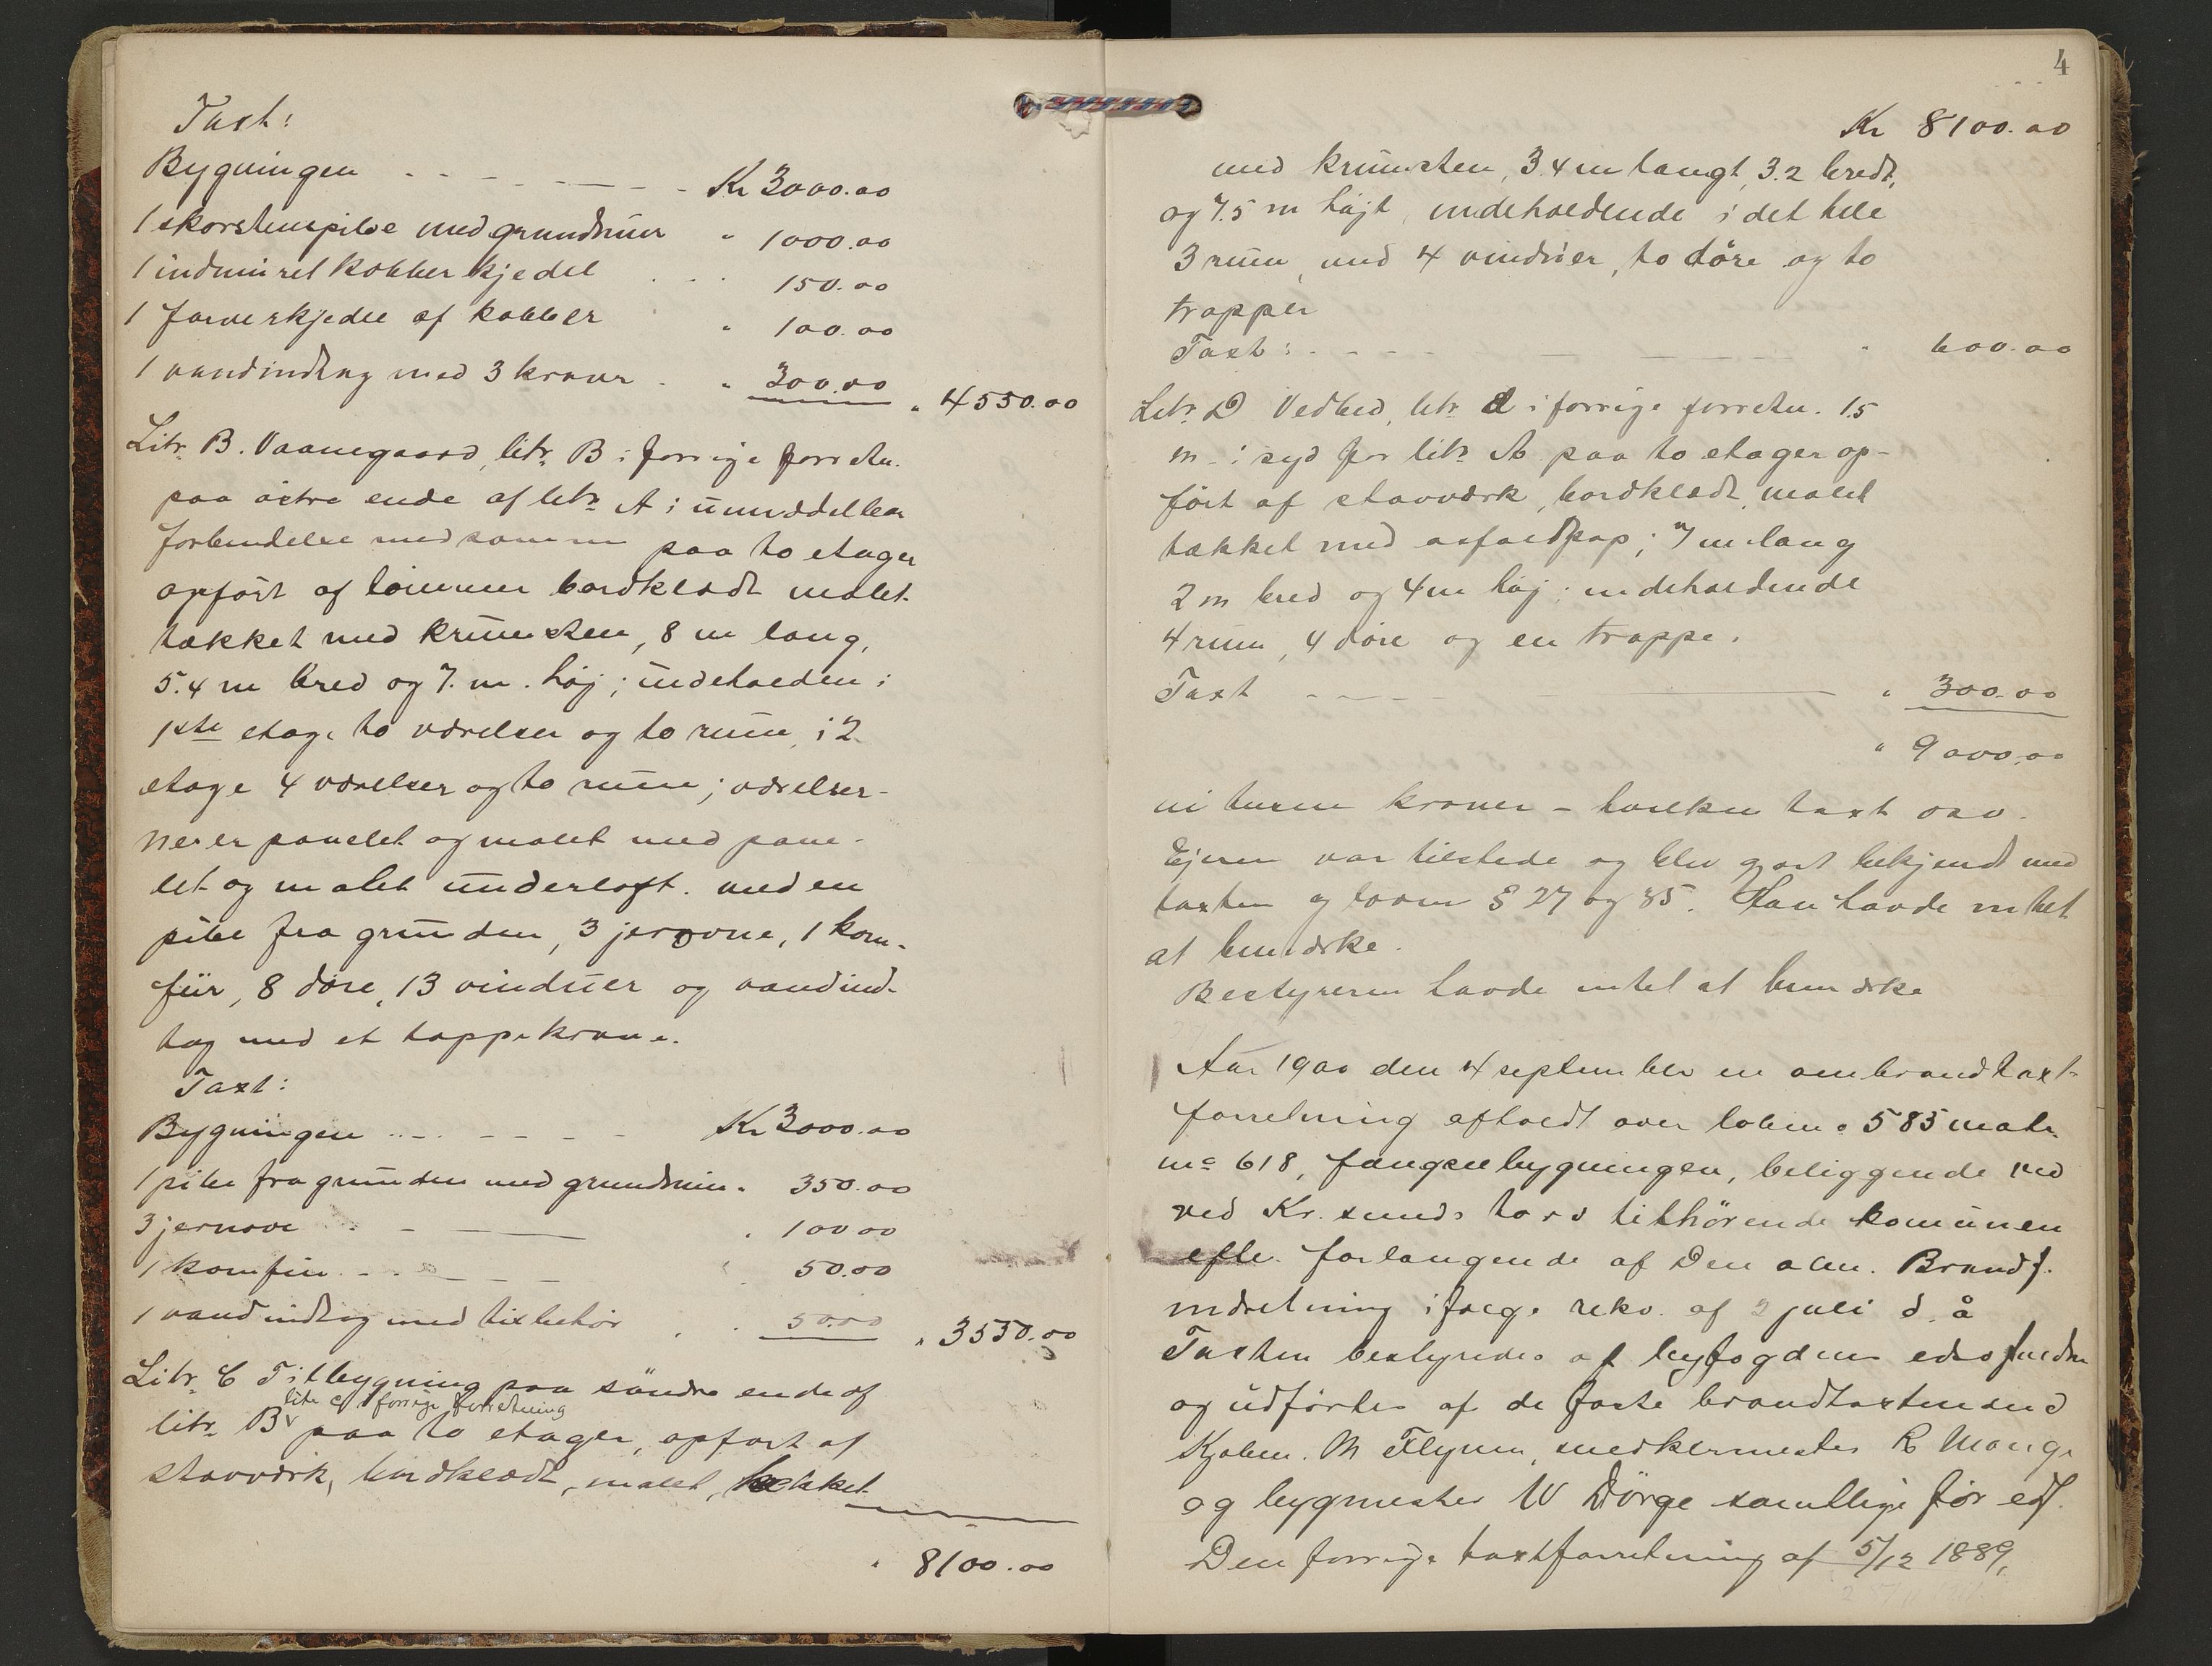 Taxt:
Bygningen - - - - - - - Kr 3000.00
1 skorstenspibe med grundmur " 1000.00
1 indmuret kobberkjedel . . . 150.00
1 farverkjedel af kobber " 100.00
1 vandindtag med 3 kraner . " 300.00 " 4550.00
Litr. B. Vaanegaard, litr. B i forrige forretn.
paa østre ende af litr A i umiddelbar
forbindelse med samme paa to etager
opført af tømmer bordklædt malet
tækket med krumsten, 8 m lang,
5.4 m bred og 7. m. høj; indeholden i
1ste etage to værelser og to rum, i 2
etage 4 værelser og to rum; værelser-
ner er panelet og malet med pane-
let og malet underloft. med en
pibe fra grunden, 3 jernovne, 1 kom-
fur, 8 døre, 13 vinduer og vandind-
tag med et tappekrane.
Taxt:
Bygningen .. - - - - - Kr 3000.00
1 pibe fra grunden med grundmur " 350.00
3 jernove . - - . 100 00
1 komfur . - - - - - 50.00
1 vandindtag med tilbehør . . 50.00 " 3550.00
Litr. C Tilbygning paa søndre ende af
litr c i forrige forretning
litr. B paa to etager, opført af
stavværk, bordklædt, malet, tækket
" 8100.00
4
Kr 8100.00
med krumsten, 3.4 m langt, 3.2 bredt,
og 7.5 m højt, indeholdende i det hele
3 rum, med 4 vinduer, to døre og to
trapper
Taxt: . - - - " 600.00
Litr. D Vedbod, litr d i forrige forretn. 1.5
m i syd for litr A paa to etager op-
ført af stavværk, bordklædt, malet
tækket med asfaldpap; 7 m lang
2 m bred og 4 m høj; indeholdende
4 rum, 4 døre og en trappe.
Taxt - - - - " 300.00
" 9000.00
ni tusen kroner - hvilken taxt
Ejeren var tilstede og blev gjort bekjendt med
taxten og loven § 27 og 35. Han havde intet
at bemærke.
Bestyreren havde intet at bemærke
Aar 1900 den 4 september en ombrandtaxt-
forretning afholdt over løbeno 585 matr.
no 618, fængselbygningen, beliggende ved
ved Kr.sunds torv tilhørende komunen
efter forlangende af Den alm. Brandf.
indretning ifølge rekv. af 2 juli d. å
Taxten bestyredes af byfogdens edsvfuldm
og udførtes af de faste brandtaxtmænd
Kjøbm. M Flynm, snedkermester R Monge
og bygmester W Dörge samtlige før edf.
Den forrige taxtforretning af 5/12 1889,